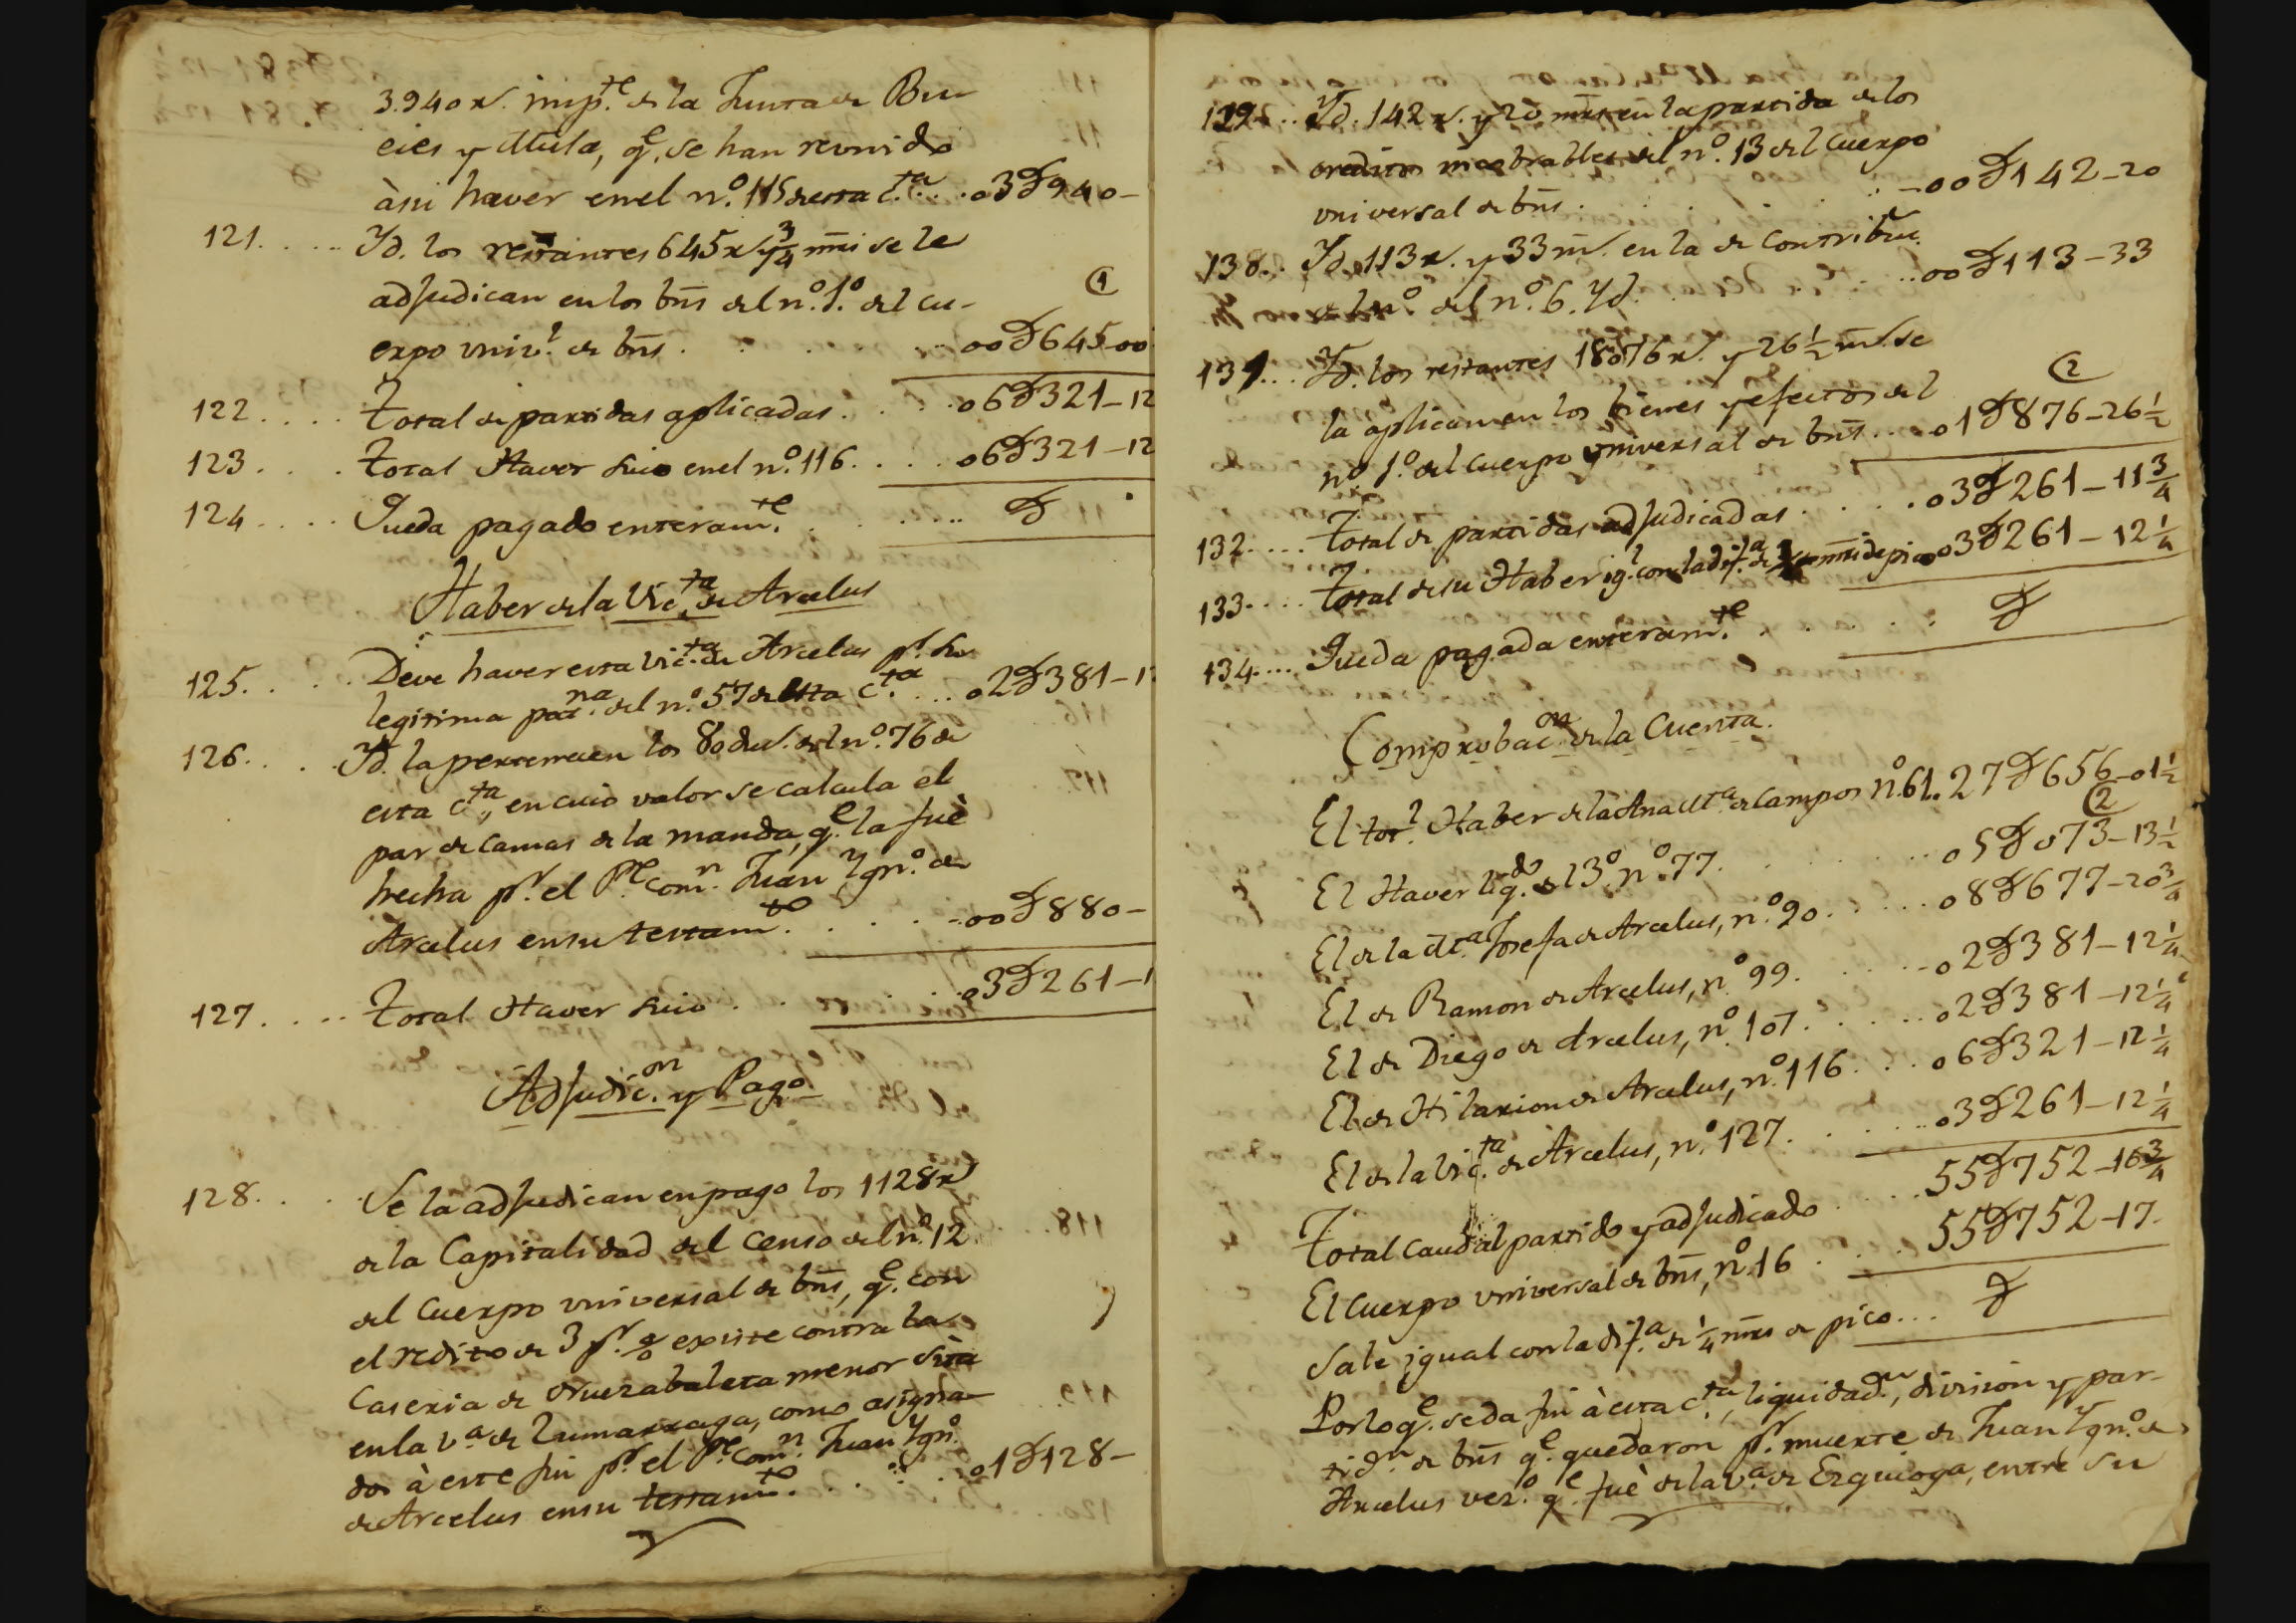 3.940 rs. impte. de la Junta de Bue
eies y Mula, qe. se han reunido
à su haver en el no. 115 de esta cta. . . 03D940-
121. . . . Yd. los restantes 645 rs y 3/4 mrs se le
adjudican en los bns del no. 1o. del cu- 1
erpo univl. de bns . . . . . 00D645-00
122. . . . Total de partidas aplicadas. . . . 06D321-12
123. . . . Total Haver suio en el no. 116. . . . 06D321-12
124. . . . Queda pagado enteramte. . . . . . D
Haber de la Victa. de Arcelus
125. . . . Deve haver esta Victa. de Arcelus pr. su
legitima patna. del no. 57 de esta cta. . . . 02D381-1
126. . . . Yd. la pertenecen los 80 duc. del no. 76 de
esta cta., en cuio valor se calcula el
par de camas de la manda, qe. la fuè
hecha pr. el Pe. comn. Juan Ygno. de
Arcelus en su testamto. . . . . 00D880-
127. . . . Total Haver suio . . . . . 03D261-1
Adjudicon. y Pago
128. . . . Se la adjudican en pago los 1128 rs
de la Capitalidad del Censo del no. 12
del Cuerpo universal de bns, qe. con
el redito de 3 pr. % existe contra la
Caseria de menor sita
en la va. de Zumarraga, como asigna-
dos à este fin pr. el Pe. comn. Juan Ygno.
de Arcelus en su testamto. . . . . 01D128-
129. . . Yd. 142 rs. y 20 mrs en la partida de los
creditos incobrables del no. 13 del Cuerpo
universal de bns . . . . . -00D142-20
130. . Yd. 113 rs. y 33 ms. en la de Contribn.
del no. 6. Yd. . . . . 00D113-33
131. . . Yd. los restantes 1876 rs. y 26 1/2 ms. se
la aplican en los bienes y efectos del 2
no. 1o. del Cuerpo universal de bns. . . . 01D876-26 1/2
132. . . . Total de partidas adjudicadas . . . . 03D261-11 3/4
133. . . . Total de su Haber igl. con la difa. de mrs de pico 03D261-12 1/4
134. . . . Queda pagada enteramte. . . . . . D
Comprobacon. de la Cuenta.
El totl. Haber de la Ana Ma. de Campos no. 61. 27D656-01 1/2
2
El Haver liqdo. del 3o. no. 77. . . . . 05D073-13 1/2
El de la Ma. Josefa de Arcelus, no. 90. . . . . 08D677-20 3/4
El de Ramon de Arcelus, no. 99. . . . . -02D381-12 1/4
El de Diego de Arcelus, no. 107. . . . . 02D381-12 1/4
El de Hilarion de Arcelus, no. 116. . . 06D321-12 1/4
El de la Victa. de Arcelus, no. 127. . . . . 03D261-12 1/4
Total caudal partido y adjudicado . . . . 55D752-16 3/4
El Cuerpo universal de bns, no. 16 . . . 55D752-17.
Sale igual con la difa. de 1/4 mrs de pico. . . D
Por lo qe. se da fin à esta cta., liquidadn., division y par-
tidn. de bns qe. quedaron pr. muerte de Juan Ygno. de
Arcelus vezo. qe. fuè de la va. de Ezquioga, entre su